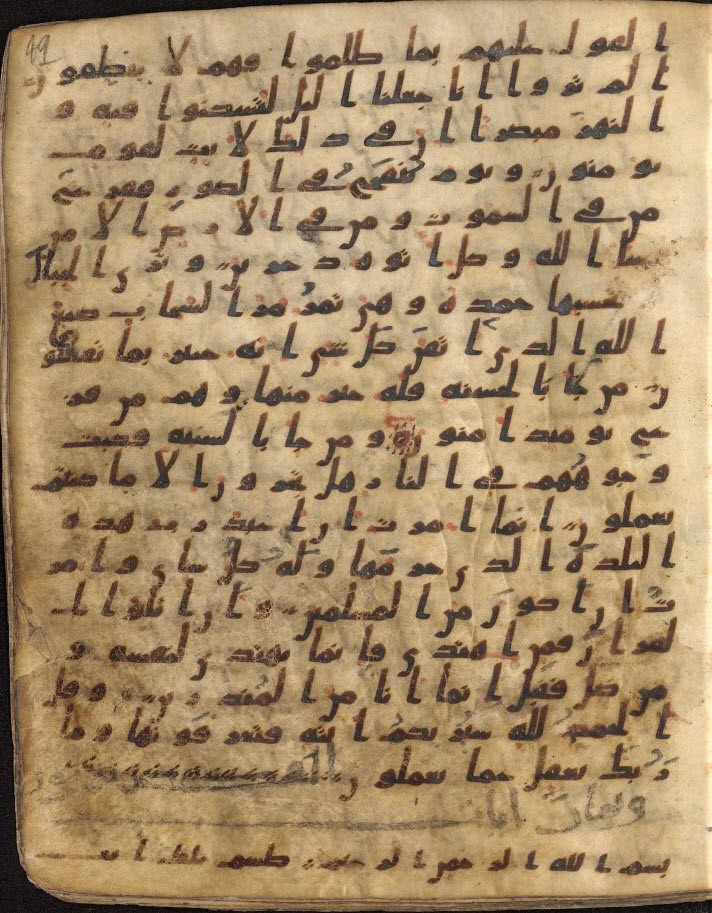 99
القول عليهم بما ظلموا فهم لا ينطقو
ن الم يروا انا جعلنا اليل ليسكنوا فيه و
النهر مبصرا ان في ذلك لايت لقوم
يومنون ويوم ينفخ في الصور ففزع
من في السموت ومن في الارض الا من
شا الله وكل اتوه دخرين وترى الجبال
تحسبها جمده وهي تمر مر السحاب صنع
الله الذي اتقن كل شي انه خبير بما تفعلو
ن من جا بالحسنه فله خير منها وهم من فز
ع يومئذ امنون ومن جا بالسيئه فكبت
وجوههم في النار هل تجزون الا ما كنتم
تعملون انما امرت ان اعبد رب هذه
البلدة الذي حرمها وله كل شي وامر
ت ان اكون من المسلمين وان اتلوا ا
لقران فمن اهتدى فانما يهتدي لنفسه و
من ضل فقل انما انا من المنذرين وقل
الحمد لله سيريكم ايته فتعرفونها وما
ربك بغفل عما تعملون
ايات
بسم الله الرحمن الرحيم طسم تلك ايت